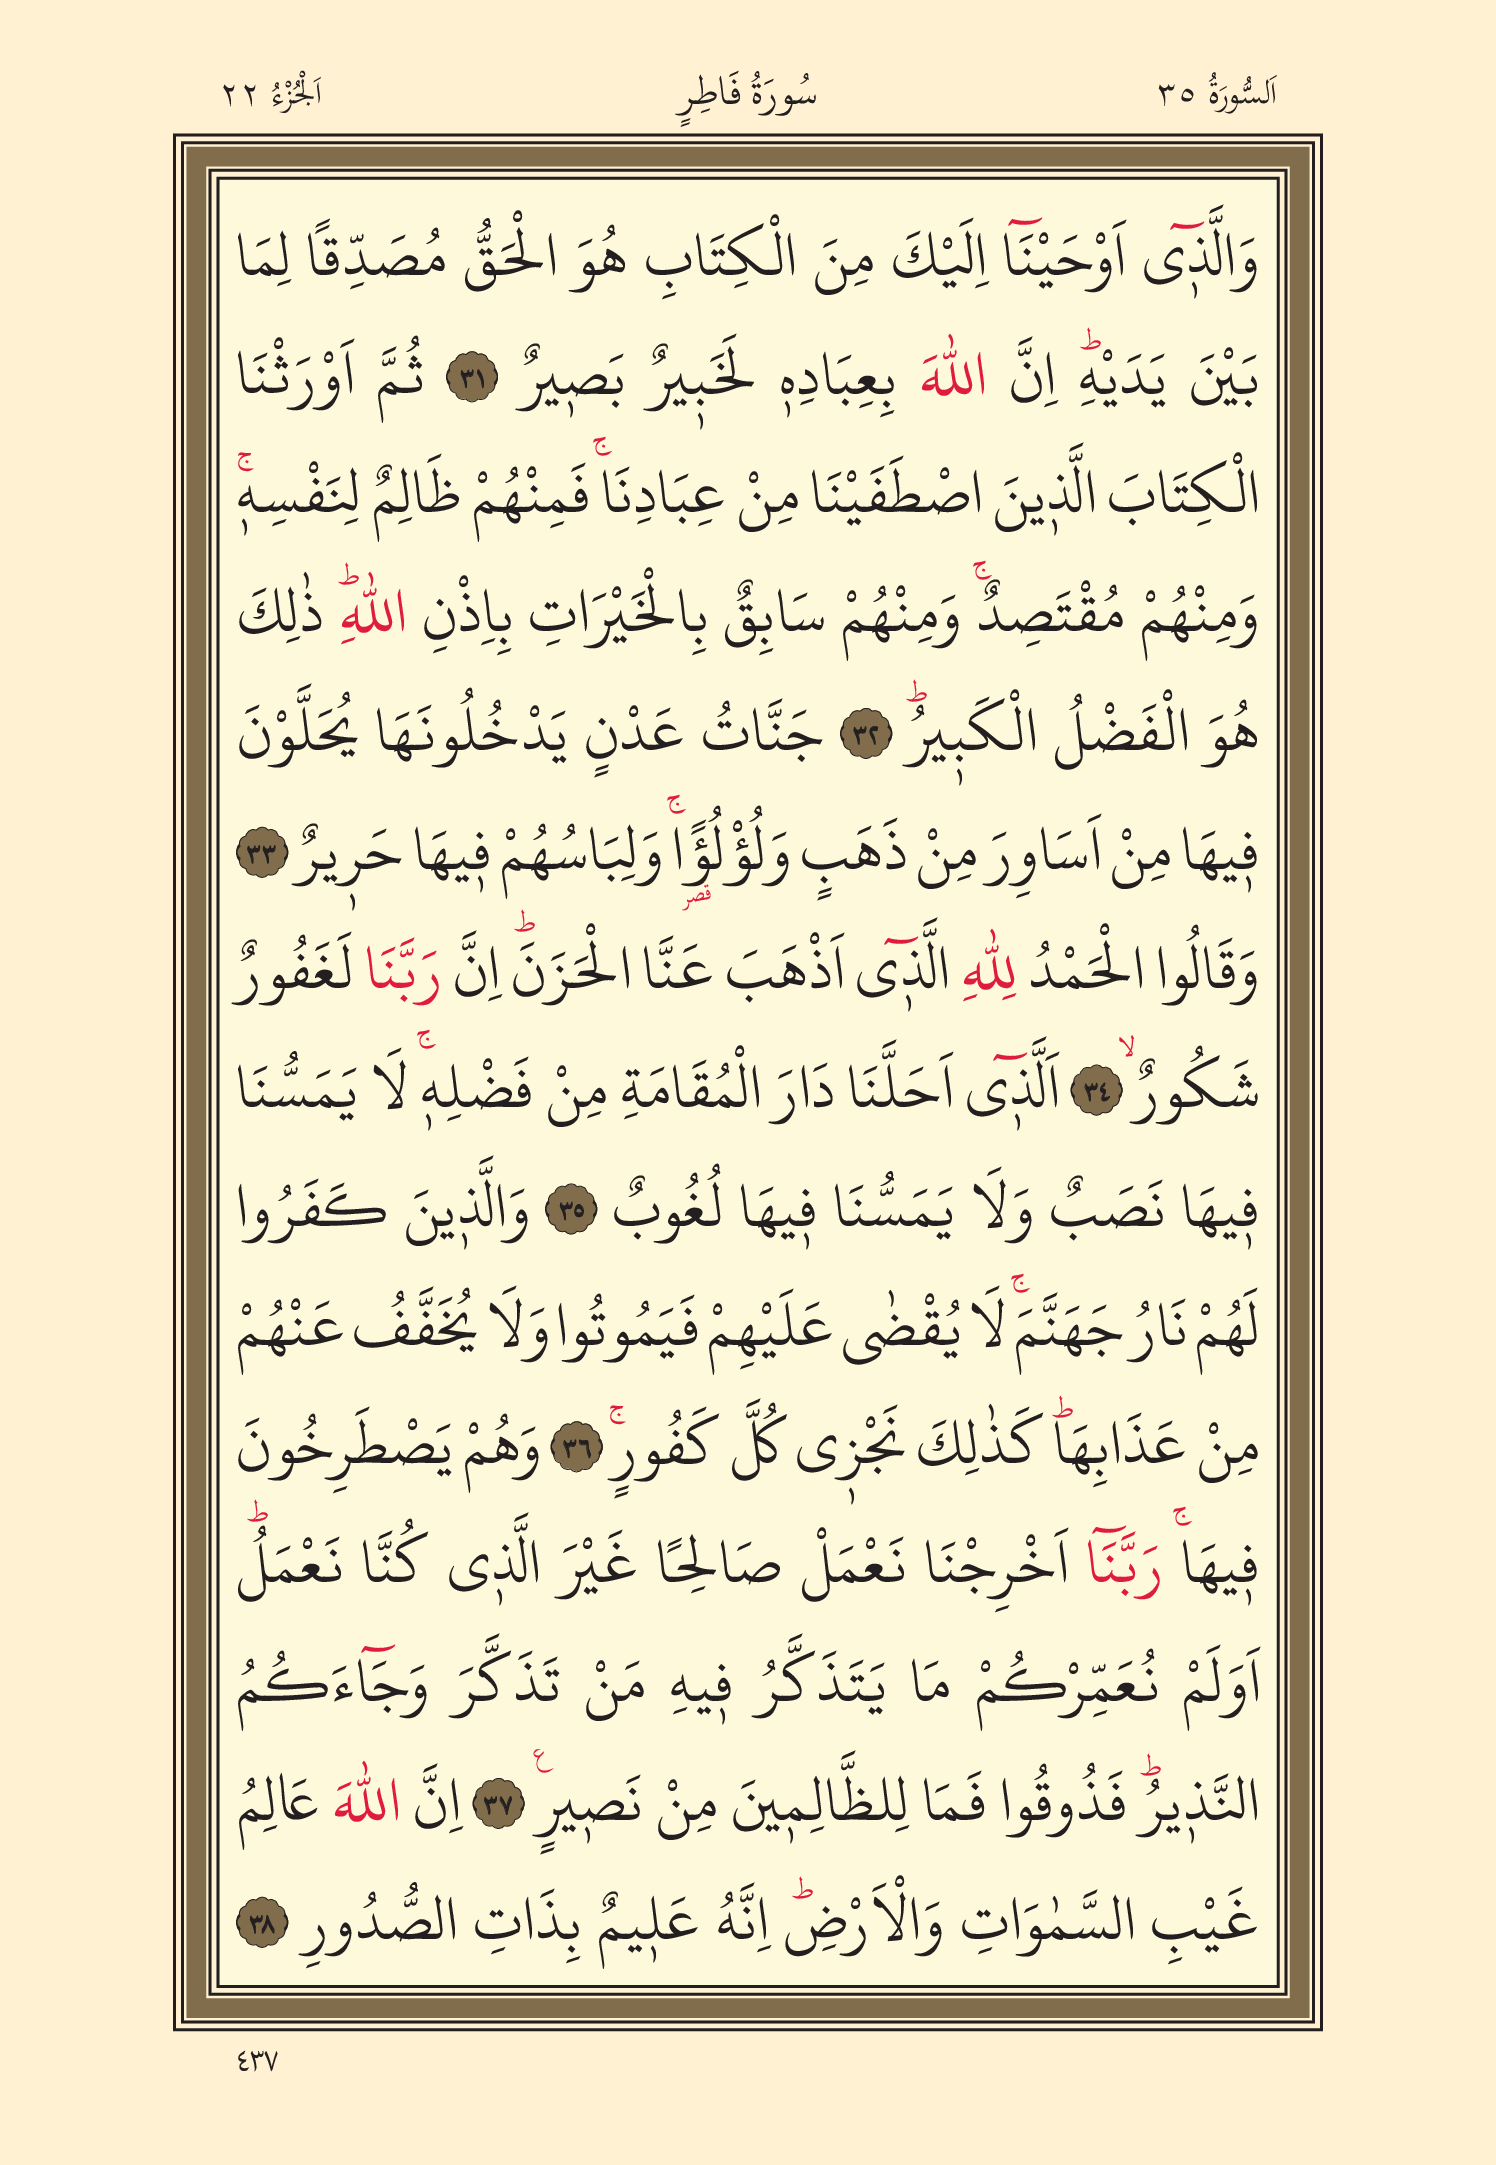 اَلسُّورَةُ ٣٥ سُورَةُ فَاطِرٍ اَلْجُزْءُ ٢٢
وَالَّذٖٓى اَوْحَيْنَٓا اِلَيْكَ مِنَ الْكِتَابِ هُوَ الْحَقُّ مُصَدِّقًا لِمَا
بَيْنَ يَدَيْهِؕ اِنَّ اللّٰهَ بِعِبَادِهٖ لَخَبٖيرٌ بَصٖيرٌ ٣١ ثُمَّ اَوْرَثْنَا
الْكِتَابَ الَّذٖينَ اصْطَفَيْنَا مِنْ عِبَادِنَاۚ فَمِنْهُمْ ظَالِمٌ لِنَفْسِهٖۚ
وَمِنْهُمْ مُقْتَصِدٌۚ وَمِنْهُمْ سَابِقٌ بِالْخَيْرَاتِ بِاِذْنِ اللّٰهِؕ ذٰلِكَ
هُوَ الْفَضْلُ الْكَبٖيرُؕ ٣٢ جَنَّاتُ عَدْنٍ يَدْخُلُونَهَا يُحَلَّوْنَ
فٖيهَا مِنْ اَسَاوِرَ مِنْ ذَهَبٍ وَلُؤْلُؤًاۚ وَلِبَاسُهُمْ فٖيهَا حَرٖيرٌ ٣٣
قصر
وَقَالُوا الْحَمْدُ لِلّٰهِ الَّذٖٓى اَذْهَبَ عَنَّا الْحَزَنَؕ اِنَّ رَبَّنَا لَغَفُورٌ
شَكُورٌۙ ٣٤ اَلَّذٖٓى اَحَلَّنَا دَارَ الْمُقَامَةِ مِنْ فَضْلِهٖۚ لَا يَمَسُّنَا
فٖيهَا نَصَبٌ وَلَا يَمَسُّنَا فٖيهَا لُغُوبٌ ٣٥ وَالَّذٖينَ كَفَرُوا
لَهُمْ نَارُ جَهَنَّمَۚ لَا يُقْضٰى عَلَيْهِمْ فَيَمُوتُوا وَلَا يُخَفَّفُ عَنْهُمْ
مِنْ عَذَابِهَاؕ كَذٰلِكَ نَجْزٖى كُلَّ كَفُورٍۚ ٣٦ وَهُمْ يَصْطَرِخُونَ
فٖيهَاۚ رَبَّنَٓا اَخْرِجْنَا نَعْمَلْ صَالِحًا غَيْرَ الَّذٖى كُنَّا نَعْمَلُؕ
اَوَلَمْ نُعَمِّرْكُمْ مَا يَتَذَكَّرُ فٖيهِ مَنْ تَذَكَّرَ وَجَٓاءَكُمُ
النَّذٖيرُؕ فَذُوقُوا فَمَا لِلظَّالِمٖينَ مِنْ نَصٖيرٍ ع ٣٧ اِنَّ اللّٰهَ عَالِمُ
غَيْبِ السَّمٰوَاتِ وَالْاَرْضِؕ اِنَّهُ عَلٖيمٌ بِذَاتِ الصُّدُورِ ٣٨
٤٣٧